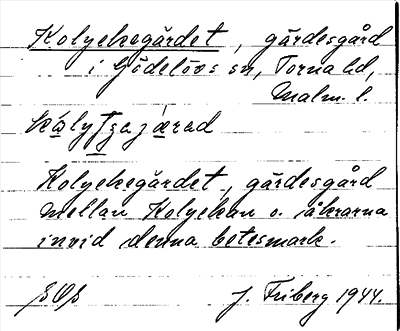 Kolyckegärdet, gärdesgård
i Gödelövs sn, Torna hd,
Malm. l.
Kolyckegärdet, gärdesgård
mellan Kolyckan o. åkrarna
invid denna betesmark.
J. Friberg 1944.